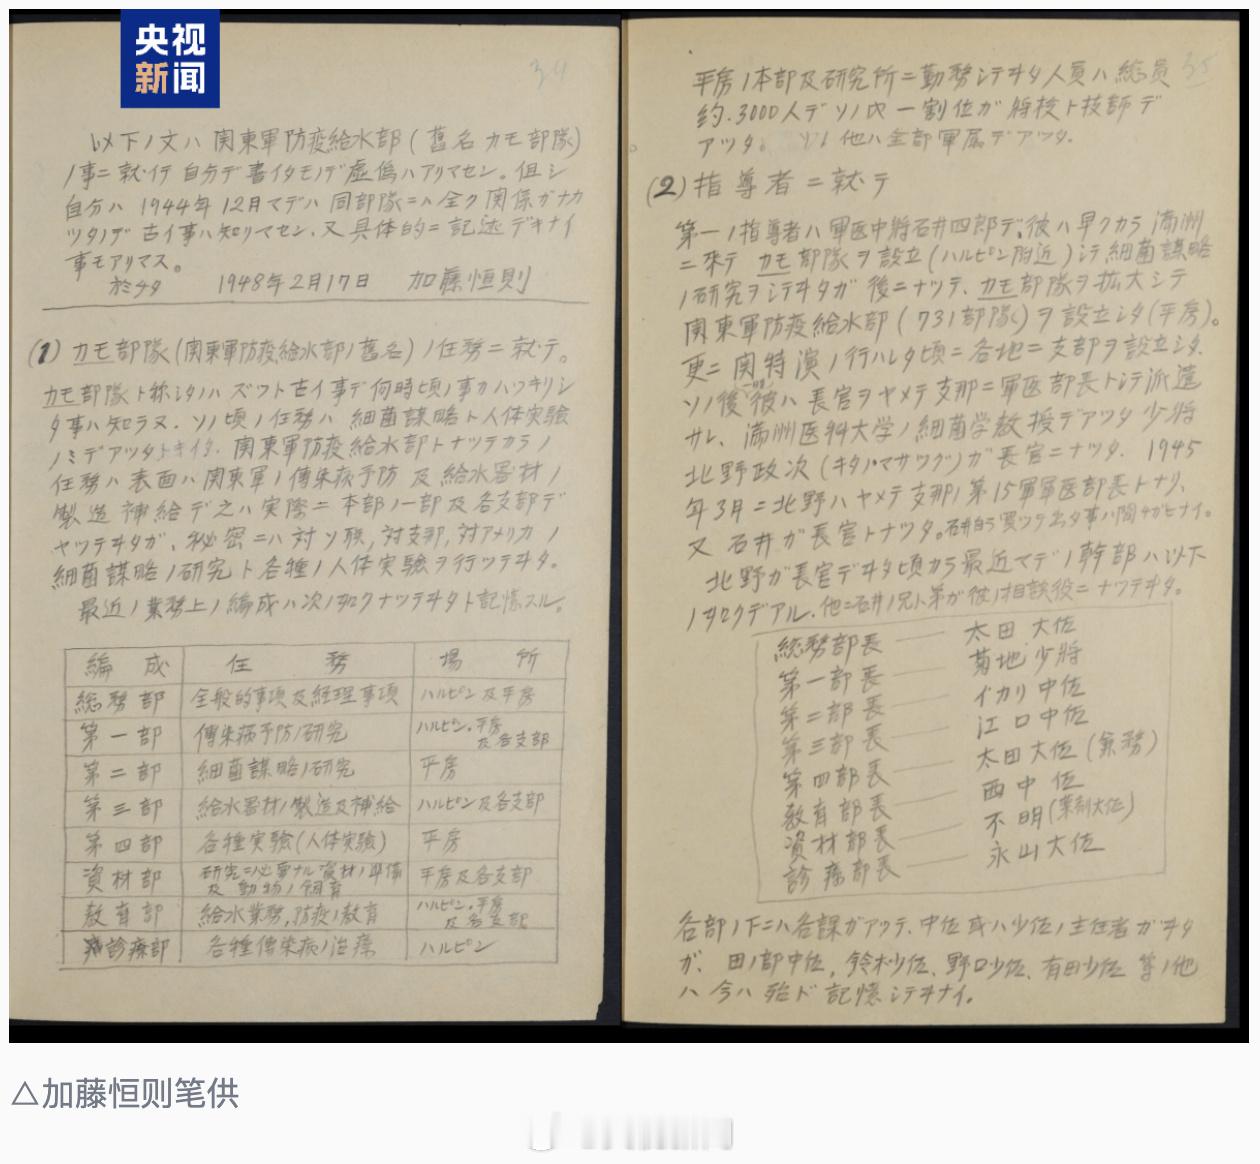 央视
新闻
34
以下ノ文ハ 関東軍防疫給水部(舊名 カモ部隊)
ノ事ニ就イテ 自分デ書イタモノデ虚偽ハアリマセン。但シ
自分ハ 1944年12月マデハ 同部隊ニハ全ク関係ガナカ
ツタノデ 古イ事ハ知リマセン. 又具体的ニ記述デキナイ
事モアリマス。
於チタ 1948年2月17日 加藤恒則
(1) カモ部隊(関東軍防疫給水部ノ舊名)ノ任務ニ就テ。
カモ部隊ト称シタノハ ズツト古イ事デ何時頃ノ事カハツキリシ
タ事ハ知ラヌ. ソノ頃ノ任務ハ 細菌謀略ト人体実験
ノミデアツタトキイタ. 関東軍防疫給水部トナツテカラノ
任務ハ表面ハ関東軍ノ傳染病予防及給水器材ノ
製造補給デ之ハ実際ニ本部ノ一部及各支部デ
ヤツテヰタガ、秘密ニハ対ソ聯,対支那,対アメリカノ
細菌謀略ノ研究ト各種ノ人体実験ヲ行ツテヰタ。
最近ノ業務上ノ編成ハ次ノ如クナツテヰタト記憶スル。
編成 任務 場所
総務部 全般的事項及経理事項 ハルピン及平房
第一部 傳染病予防ノ研究 ハルピン.平房及各支部
第二部 細菌謀略ノ研究 平房
第三部 給水器材ノ製造及補給 ハルピン及各支部
第四部 各種実験(人体実験) 平房
資材部 研究ニ必要ナル資材ノ準備及動物ノ飼育 平房及各支部
教育部 給水業務,防疫ノ教育 ハルピン.平房及各支部
診療部 各種傳染病ノ治療 ハルピン
35
平房ノ本部及研究所ニ勤務シテヰタ人員ハ総員
約.3000人デソノ内一割位ガ将校ト技師デ
アツタ。ソノ他ハ全部軍属デアツタ.
(2) 指導者ニ就テ
第一ノ指導者ハ軍医中将石井四郎デ、彼ハ早クカラ満洲
ニ来テ カモ部隊ヲ設立(ハルピン附近)シテ細菌謀略
ノ研究ヲシテヰタガ 後ニナツテ、カモ部隊ヲ拡大シテ
関東軍防疫給水部(731部隊)ヲ設立シタ(平房)。
更ニ関特演ノ行ハレタ頃ニ各地ニ支部ヲ設立シタ.
ソノ後彼ハ長官ヲヤメテ支那ニ軍医部長トシテ派遣
サレ、満洲医科大学ノ細菌学教授デアツタ少将
北野政次(キタノマサツグ)ガ長官ニナツタ. 1945
年3月ニ北野ハヤメテ支那ノ第15軍軍医部長トナリ、
又石井ガ長官トナツタ。石井自ラ買ツテ出タ事ハ間チガヒナイ。
北野ガ長官デヰタ頃カラ最近マデノ幹部ハ以下
ノ如クデアル.他ニ石井ノ兄ト弟ガ彼ノ相談役ニナツテヰタ。
総務部長 —— 太田大佐
第一部長 —— 菊地少将
第二部長 —— イカリ中佐
第三部長 —— 江口中佐
第四部長 —— 太田大佐(兼務)
教育部長 —— 西中佐
資材部長 —— 不明(薬剤大佐)
診療部長 —— 永山大佐
各部ノ下ニハ各課ガアツテ、中佐或ハ少佐ノ主任者ガヰタ
ガ、田ノ部中佐,鈴木少佐、野口少佐、有田少佐等ノ他
ハ今ハ殆ド記憶シテヰナイ。
△加藤恒则笔供